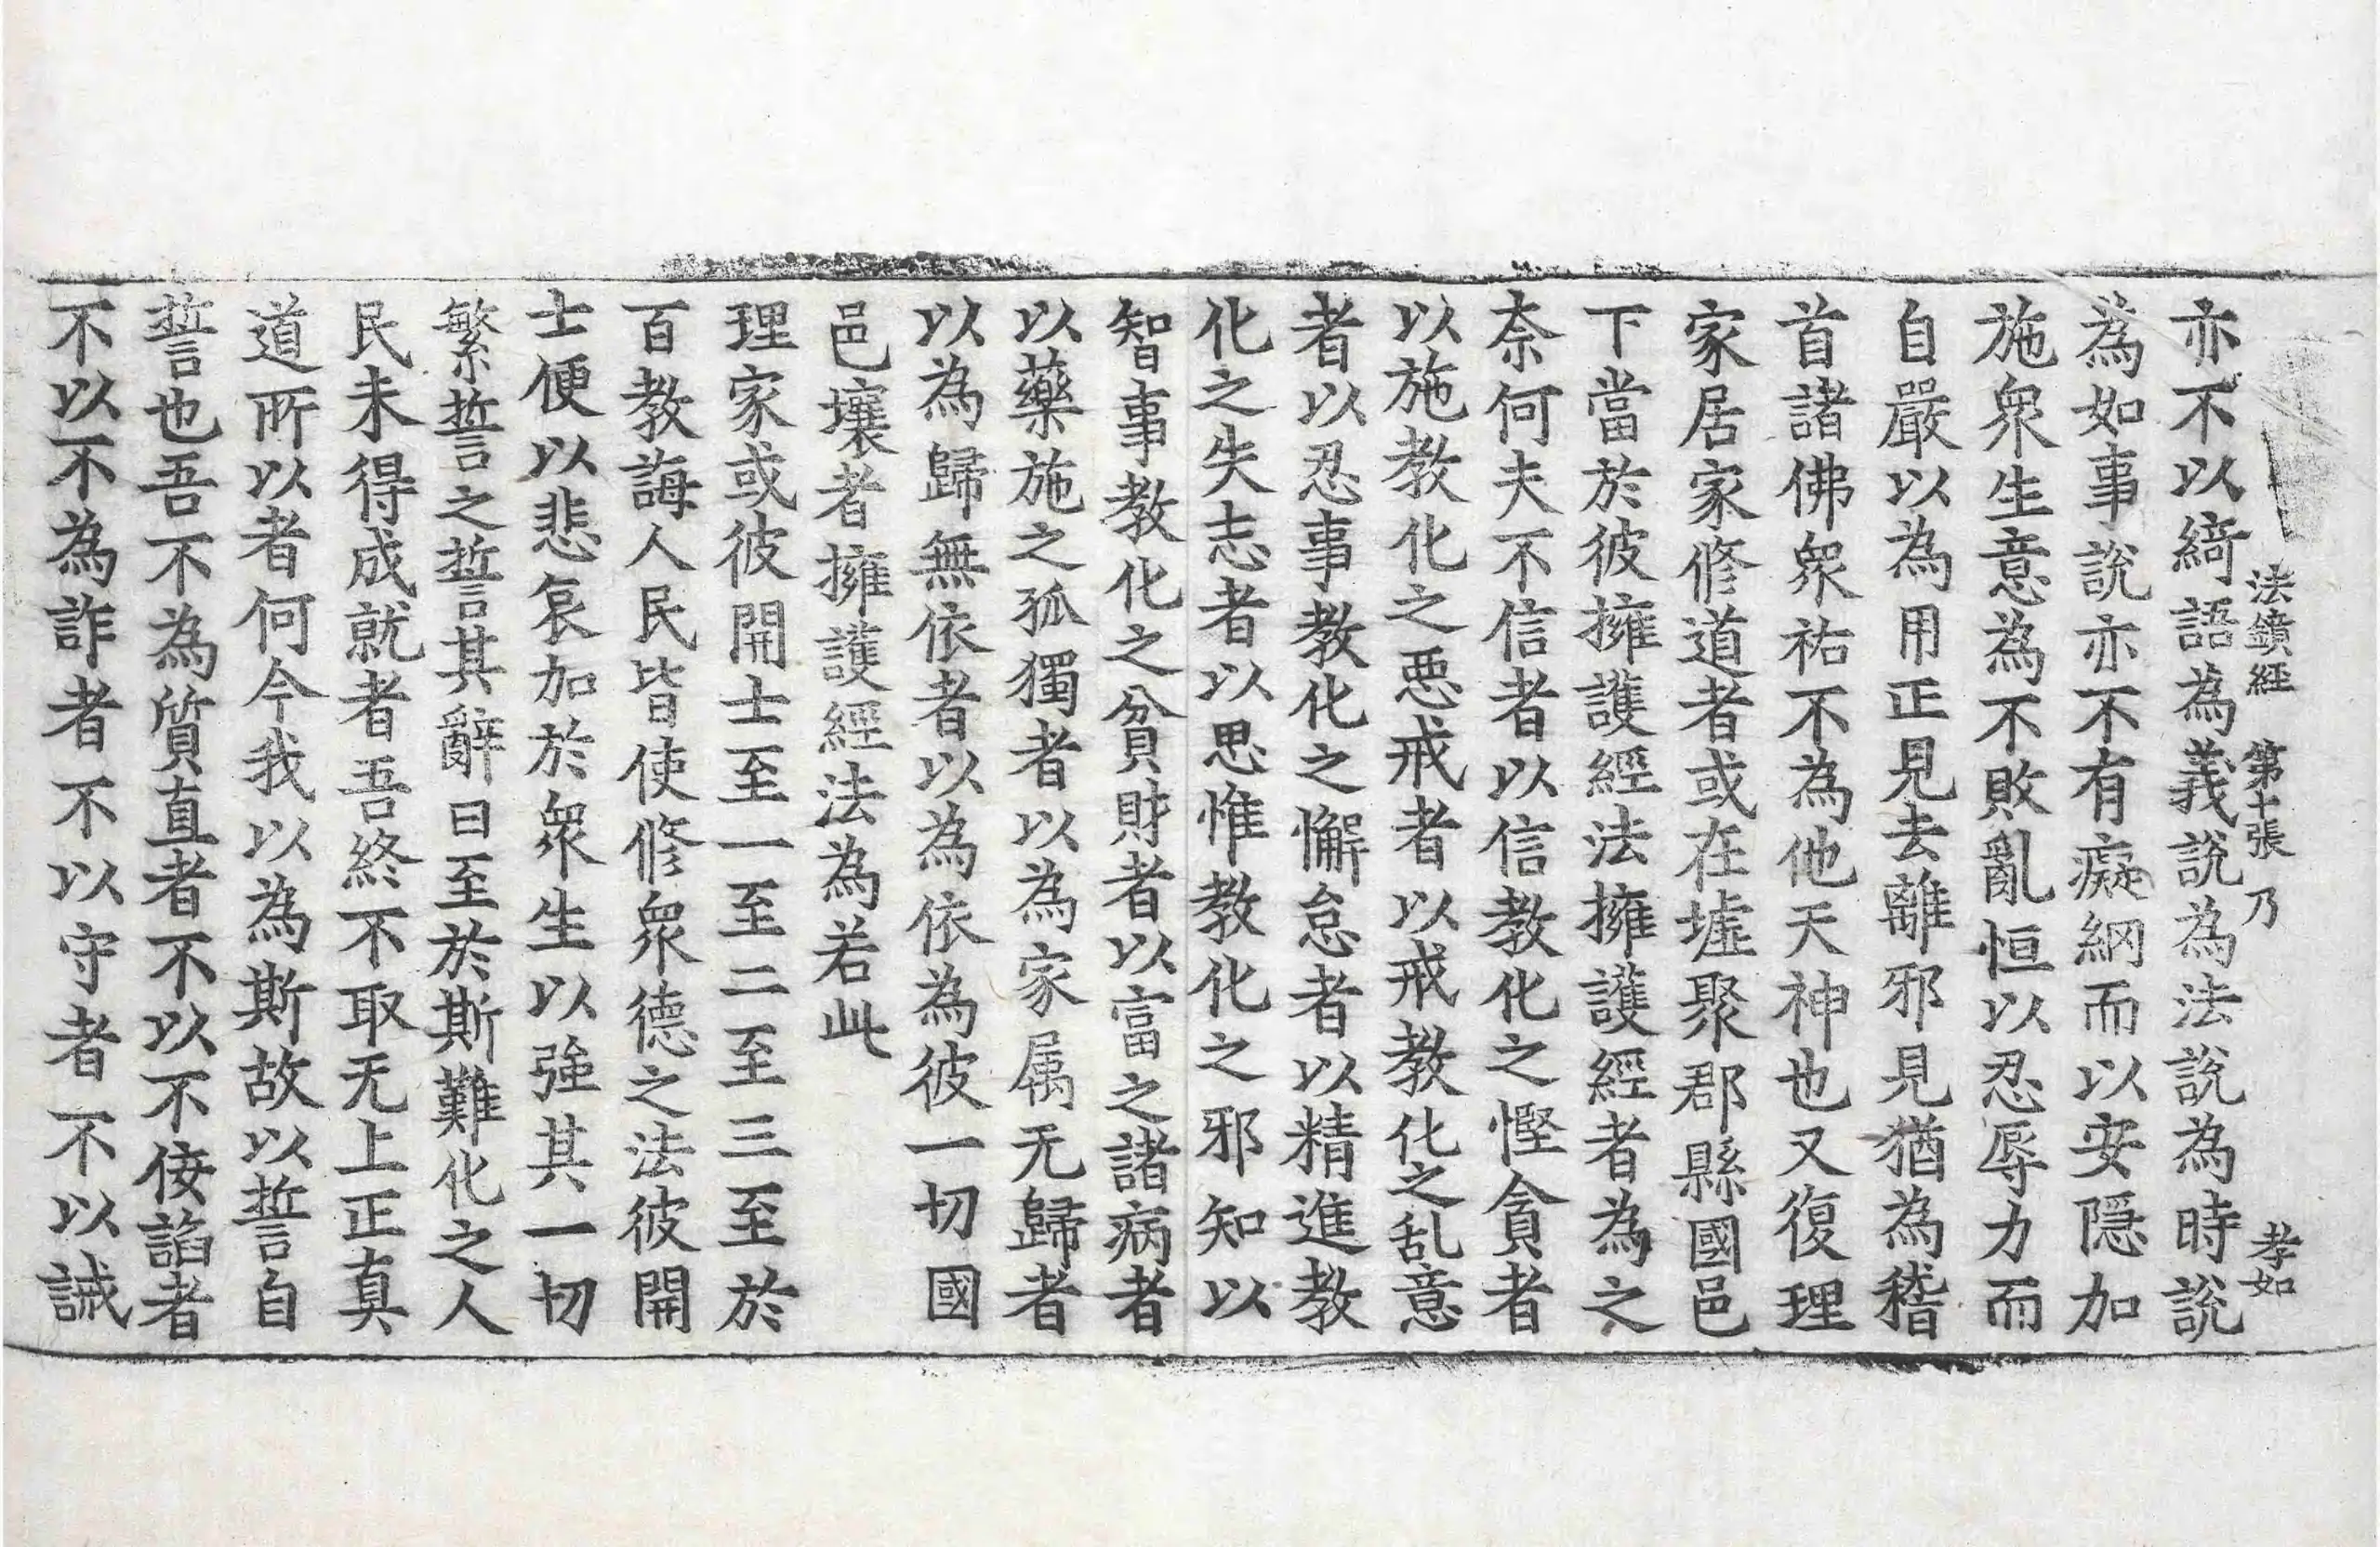 法鏡經 第十張 乃 孝如
亦不以綺語為義說為法說為時說
為如事說亦不有癡網而以安隱加
施衆生意為不敗亂恒以忍辱力而
自嚴以為用正見去離邪見猶為稽
首諸佛衆祐不為他天神也又復理
家居家修道者或在墟聚郡縣國邑
下當於彼擁護經法擁護經者為之
奈何夫不信者以信教化之慳貪者
以施教化之惡戒者以戒教化之乱意
者以忍事教化之懈怠者以精進教
化之失志者以思惟教化之邪知以
智事教化之貧財者以富之諸病者
以藥施之孤獨者以為家属无歸者
以為歸無依者以為依為彼一切國
邑壤者擁護經法為若此
理家或彼開士至一至二至三至於
百教誨人民皆使修衆德之法彼開
士便以悲哀加於衆生以強其一切
繁誓之誓其辭曰至於斯難化之人
民未得成就者吾終不取无上正真
道所以者何今我以為斯故以誓自
誓也吾不為質直者不以不侫諂者
不以不為詐者不以守者不以誡